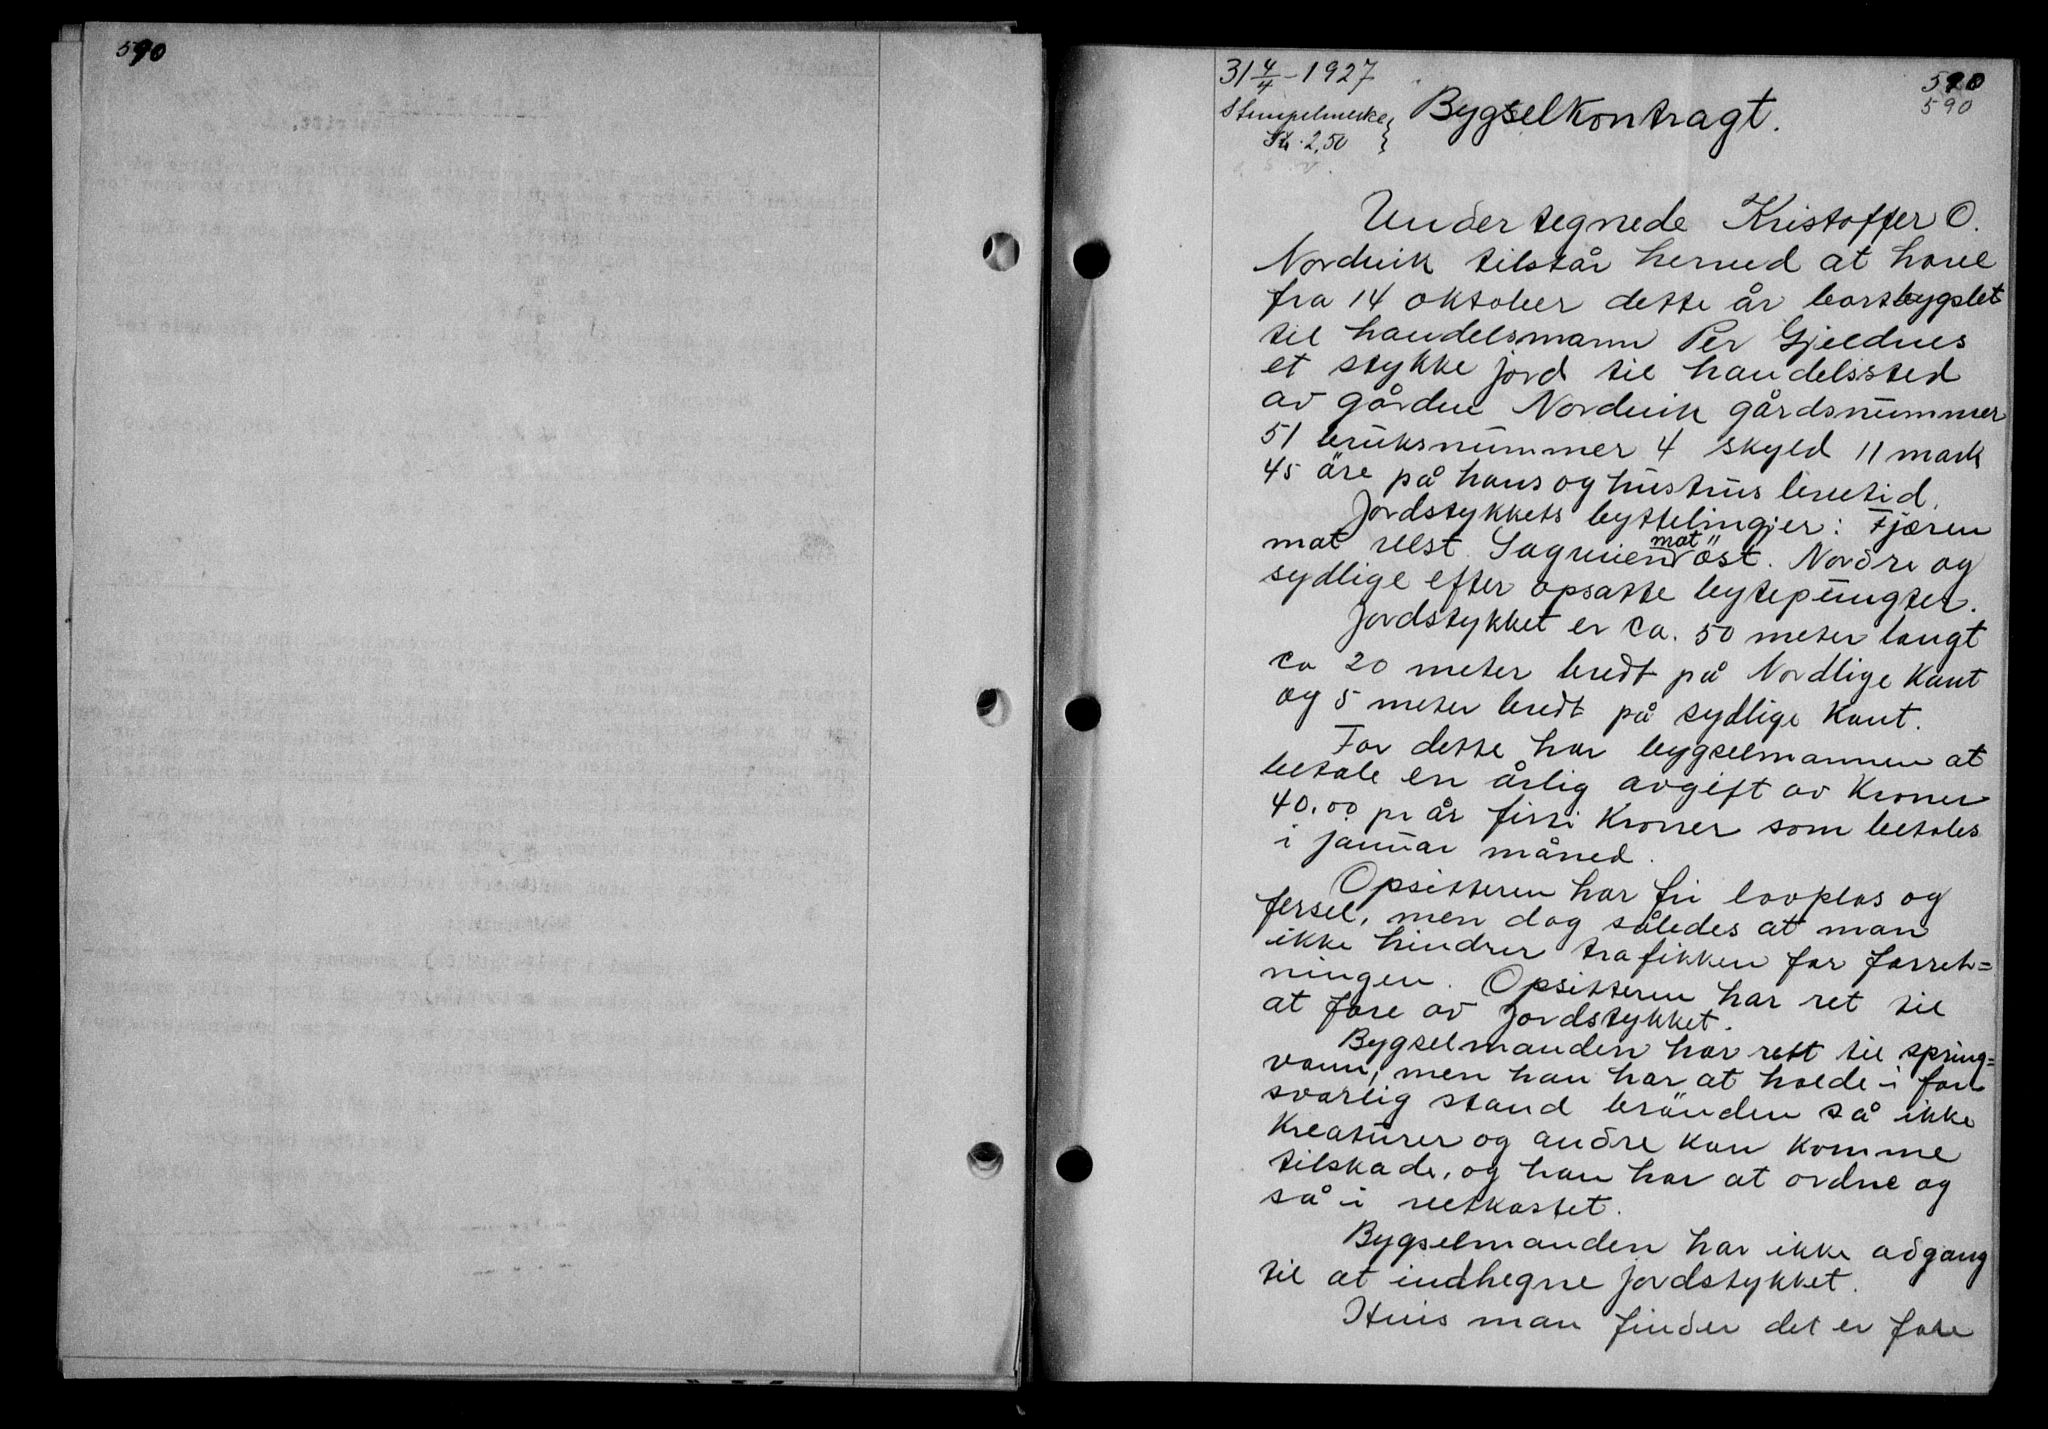 590
31 4/4 - 1927
590
590
Stempelmerke
Kr. 2,50
Bygselkontragt.
Undertegnede Kristoffer O.
Nordvik tilstår herved at have
fra 14 oktober dette år bortbygslet
til handelsmann Per Gjeldnes
et stykke jord til handelssted
av gården Nordvik gårdsnummer
51 bruksnummer 4 skyld 11 mark
45 öre på hans og hustrus levetid.
Jordstykkets byttelingjer: Fjæren
mot vest. Sagveien mot öst. Nordre og
sydlige efter opsatte bytepungter.
Jordstykket er ca. 50 meter langt
ca 20 meter bredt på Nordlige kant
og 5 meter bredt på sydlige kant.
For dette har bygselmannen at
betale en årlig avgift av Kroner
40.00 pr år firti Kroner som betales
i januar måned.
Opsitteren har fri lovplas og
fersel, men dog således at man
ikke hindrer trafikken for forret=
ningen. Opsitteren har ret til
at fare av jordstykket.
Bygselmanden har rett til spring=
vann, men han har at holde i for
svarlig stand brönden så ikke
kreaturer og andre kan komme
tilskade, og han har at ordne og
så i vetkastet.
Bygselmanden har ikke adgang
til at indhegne jordstykket.
Hvis man finder det er fare